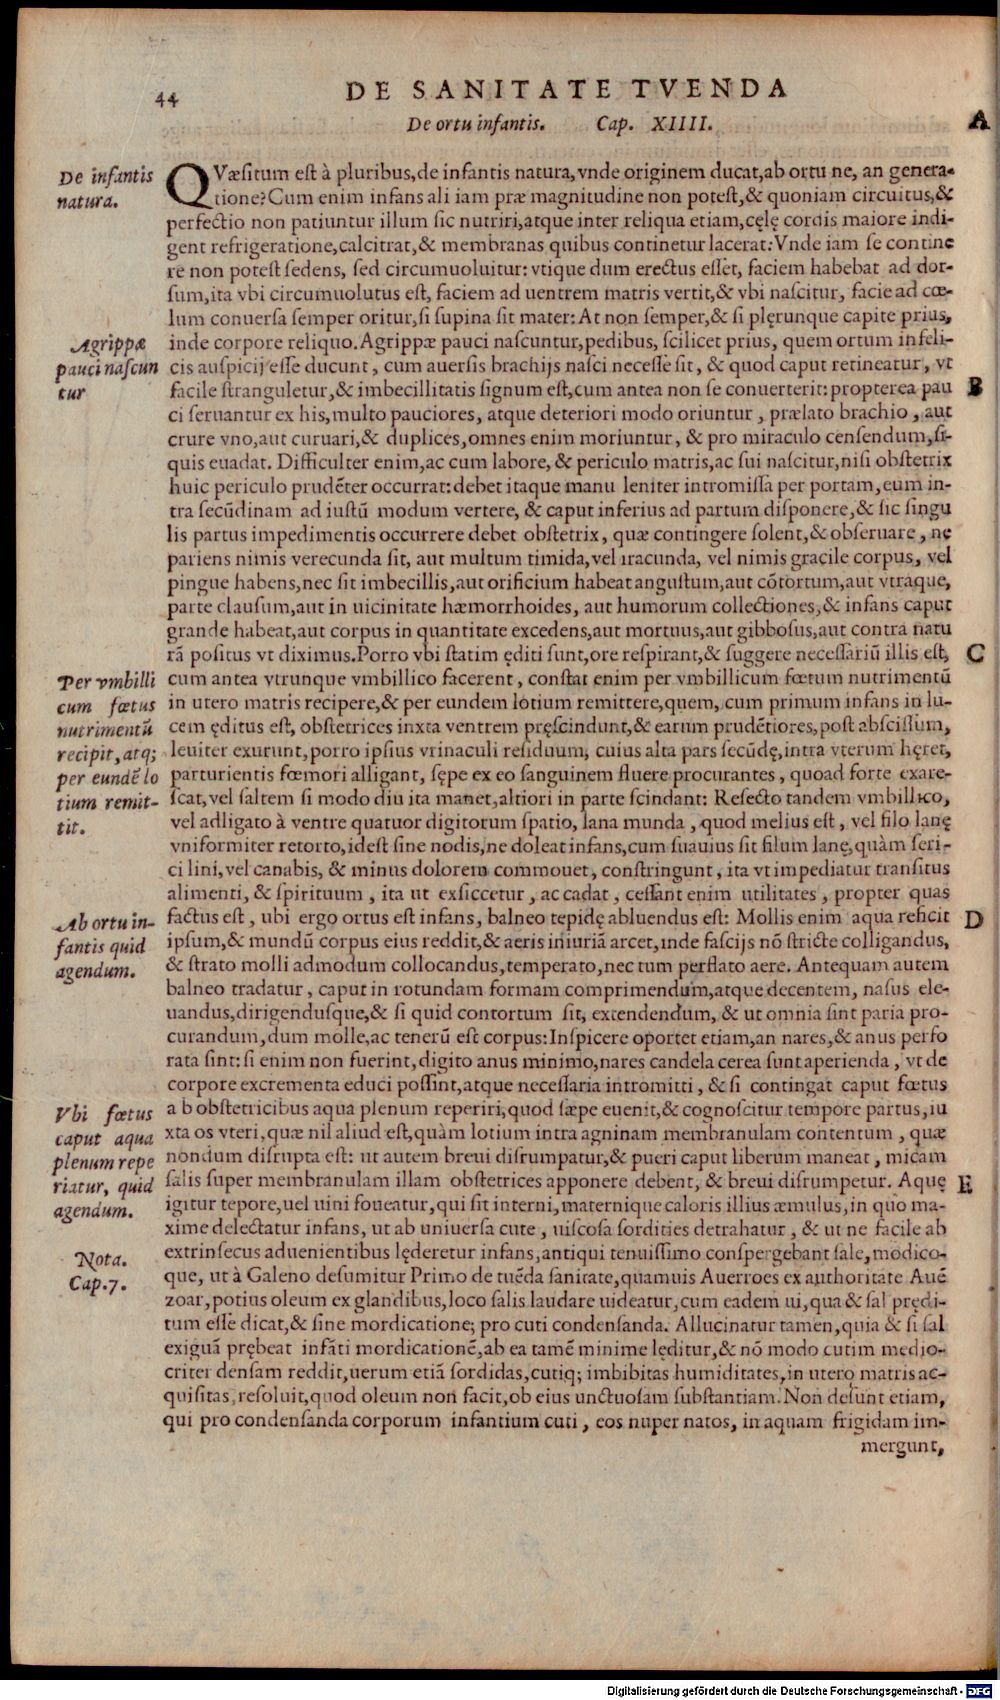 44
DE SANITATE TVENDA
De ortu infantis. Cap. XIIII.
A
De infantis
natura.
QVæsitum est à pluribus,de infantis natura,vnde originem ducat,ab ortu ne, an genera-
tione?Cum enim infans ali iam præ magnitudine non potest,& quoniam circuitus,&
perfectio non patiuntur illum sic nutriri,atque inter reliqua etiam,cęlę cordis maiore indi-
gent refrigeratione,calcitrat,& membranas quibus continetur lacerat:Vnde iam se contine
re non potest sedens, sed circumuoluitur: vtique dum erectus esset, faciem habebat ad dor-
sum,ita vbi circumuolutus est, faciem ad uentrem matris vertit,& vbi nascitur, facie ad cœ-
lum conuersa semper oritur,si supina sit mater: At non semper,& si plęrunque capite prius,
Agrippæ
pauci nascun
tur
inde corpore reliquo.Agrippæ pauci nascuntur,pedibus, scilicet prius, quem ortum infeli-
cis auspicij esse ducunt, cum auersis brachijs nasci necesse sit, & quod caput retineatur, vt
B
facile stranguletur,& imbecillitatis signum est,cum antea non se conuerterit: propterea pau
ci seruantur ex his,multo pauciores, atque deteriori modo oriuntur, prælato brachio, aut
crure vno,aut curuari,& duplices,omnes enim moriuntur, & pro miraculo censendum,si-
quis euadat. Difficulter enim,ac cum labore, & periculo matris,ac sui nascitur,nisi obstetrix
huic periculo prudẽter occurrat: debet itaque manu leniter intromissa per portam,eum in-
tra secũdinam ad iustũ modum vertere, & caput inferius ad partum disponere,& sic singu
lis partus impedimentis occurrere debet obstetrix, quæ contingere solent,& obseruare, ne
pariens nimis verecunda sit, aut multum timida,vel iracunda, vel nimis gracile corpus, vel
pingue habens,nec sit imbecillis,aut orificium habeat angustum,aut cõtortum,aut vtraque,
parte clausum,aut in uicinitate hæmorrhoides, aut humorum collectiones,& infans caput
grande habeat,aut corpus in quantitate excedens,aut mortuus,aut gibbosus,aut contra natu
rã positus vt diximus.Porro vbi statim ęditi sunt,ore respirant,& suggere necessariũ illis est,
C
Per vmbilli
cum fœtus
nutrimentũ
recipit, atq;
per eundẽ lo
tium remit-
tit.
cum antea vtrunque vmbillico facerent, constat enim per vmbillicum fœtum nutrimentũ
in utero matris recipere,& per eundem lotium remittere,quem,cum primum infans in lu-
cem ęditus est, obstetrices inxta ventrem pręscindunt,& earum prudẽtiores,post abscissum,
leuiter exurunt,porro ipsius vrinaculi residuum, cuius alta pars secũdę,intra vterum hęret,
parturientis fœmori alligant, sępe ex eo sanguinem fluere procurantes, quoad forte exare-
scat,vel saltem si modo diu ita manet,altiori in parte scindant: Resecto tandem vmbillico,
vel adligato à ventre quatuor digitorum spatio, lana munda, quod melius est, vel filo lanę
vniformiter retorto,idest sine nodis,ne doleat infans,cum suauius sit filum lanę,quàm seri-
ci lini,vel canabis, & minus dolorem commouet, constringunt, ita vt impediatur transitus
alimenti, & spirituum, ita ut exsiccetur, ac cadat, cessant enim utilitates, propter quas
Ab ortu in-
fantis quid
agendum.
factus est, ubi ergo ortus est infans, balneo tepidę abluendus est: Mollis enim aqua reficit
D
ipsum,& mundũ corpus eius reddit,& aeris iniuriã arcet,inde fascijs nõ stricte colligandus,
& strato molli admodum collocandus,temperato,nec tum perflato aere. Antequam autem
balneo tradatur, caput in rotundam formam comprimendum,atque decentem, nasus ele-
uandus,dirigendusque,& si quid contortum sit, extendendum, & ut omnia sint paria pro-
curandum,dum molle,ac tenerũ est corpus:Inspicere oportet etiam,an nares,& anus perfo
rata sint: si enim non fuerint,digito anus minimo,nares candela cerea sunt aperienda, vt de
corpore excrementa educi possint,atque necessaria intromitti, & si contingat caput fœtus
Vbi fœtus
caput aqua
plenum repe
riatur, quid
agendum.
a b obstetricibus aqua plenum reperiri,quod sæpe euenit,& cognoscitur tempore partus,iu
xta os vteri,quæ nil aliud est,quàm lotium intra agninam membranulam contentum, quæ
nondum disrupta est: ut autem breui disrumpatur,& pueri caput liberum maneat, micam
salis super membranulam illam obstetrices apponere debent, & breui disrumpetur. Aquę
E
igitur tepore,uel uini foueatur,qui sit interni,maternique caloris illius æmulus,in quo ma-
xime delectatur infans, ut ab uniuersa cute, uiscosa sordities detrahatur, & ut ne facile ab
Nota.
Cap.7.
extrinsecus aduenientibus lęderetur infans,antiqui tenuissimo conspergebant sale,modico-
que, ut à Galeno desumitur Primo de tuẽda sanitate,quamuis Auerroes ex authoritate Auẽ
zoar,potius oleum ex glandibus,loco salis laudare uideatur,cum eadem ui,qua & sal prędi-
tum esse dicat,& sine mordicatione; pro cuti condensanda. Allucinatur tamen,quia & si sal
exiguã prębeat infãti mordicationẽ,ab ea tamẽ minime lęditur,& nõ modo cutim medio-
criter densam reddit,uerum etiã sordidas,cutiq; imbibitas humiditates,in utero matris ac-
quisitas,resoluit,quod oleum non facit,ob eius unctuosam substantiam.Non desunt etiam,
qui pro condensanda corporum infantium cuti, eos nuper natos, in aquam frigidam im-
mergunt,
Digitalisierung gefördert durch die Deutsche Forschungsgemeinschaft - DFG